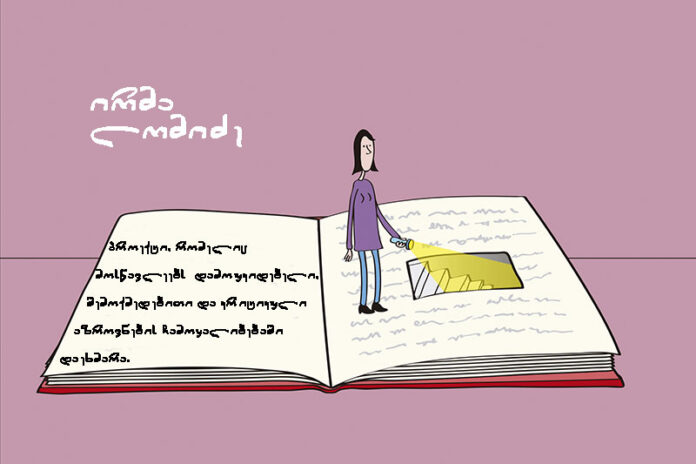 ირმა
ლომიძე
პროექტი, რომელიც
მოსწავლეებს დამოუკიდებელი,
შემოქმედებითი და კრიტიკული
აზროვნების ჩამოყალიბებაში
დაეხმარა.